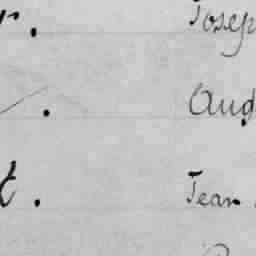 r. Josep
. Aug
t. Jean